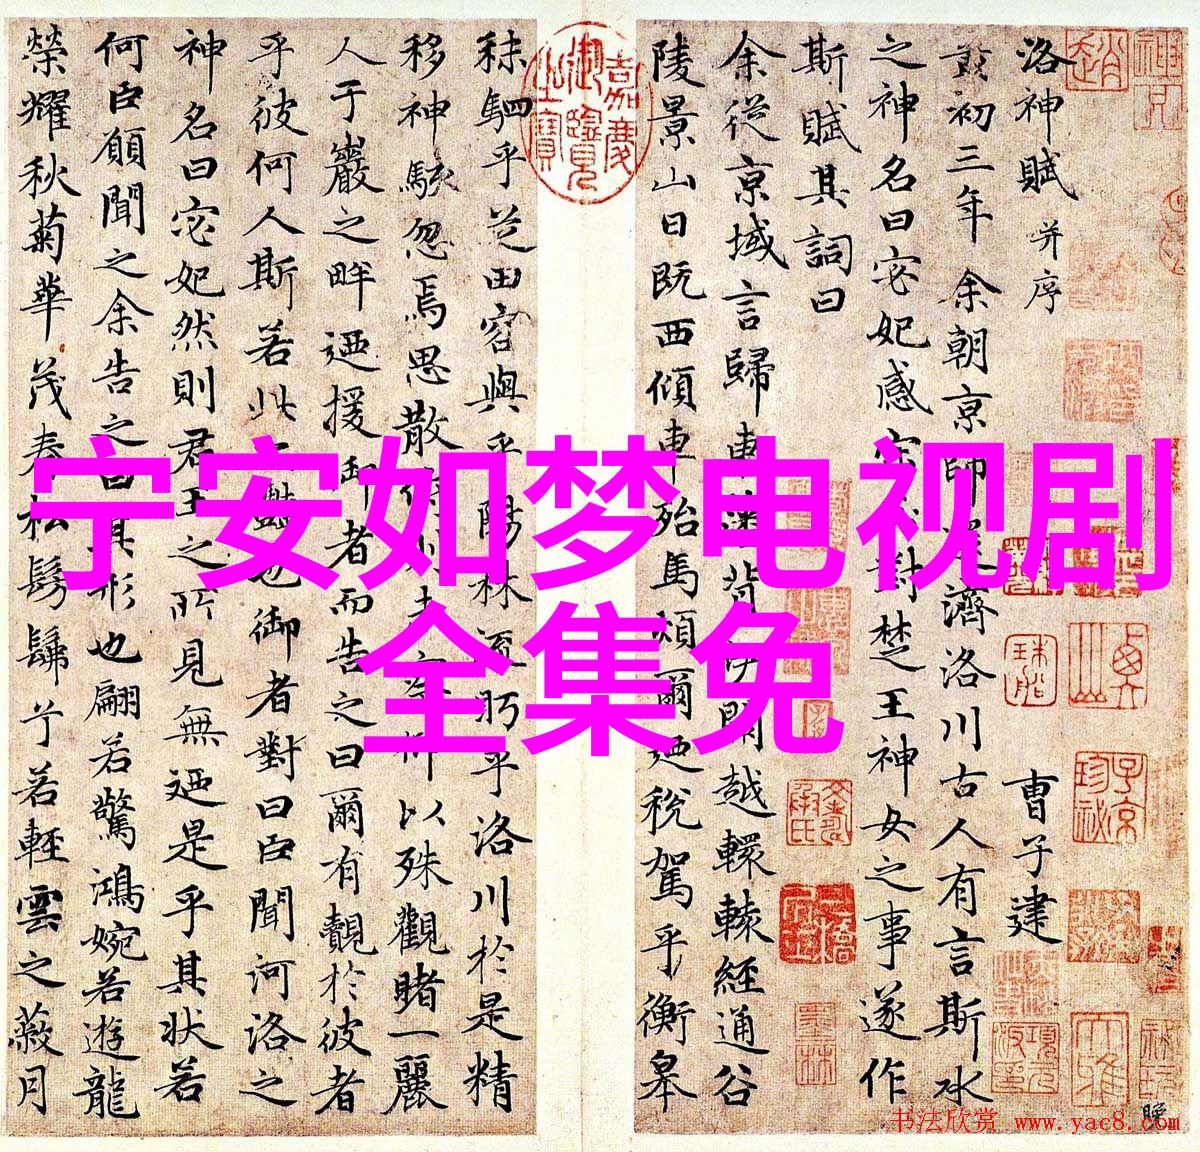 宁安如梦电视剧
全集免
洛神賦 并序 曹子建
黃初三年余朝京師還濟洛川古人有言斯水
之神名曰宓妃感宋玉對楚王神女之事遂作
斯賦其詞曰
余從京域言歸東藩背伊闕越轘轅經通谷
陵景山日既西傾車殆馬煩爾迺稅駕乎衡皋
嘉慶御覽之寶
秣駟乎芝田容與乎陽林流眄乎洛川於是精
移神駭忽焉思散仰以殊觀睹一麗
人于巖之畔迺援御者而告之曰爾有覿於彼者
乎彼何人斯若此之豔也御者對曰臣聞河洛之
神名曰宓妃然則君王之所見無迺是乎其狀若
何臣願聞之余告之曰其形也翩若驚鴻婉若遊龍
榮耀秋菊華茂春松髣髴兮若輕雲之蔽月
书法欣赏 www.yac8.com